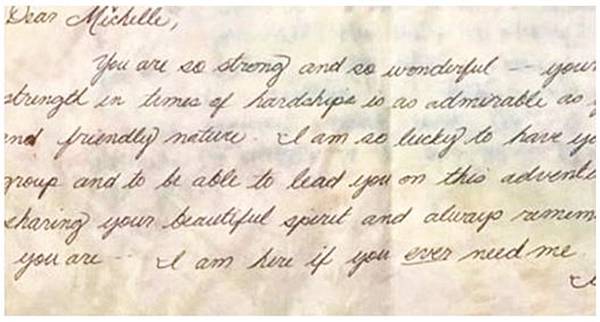 Dear Michelle,
You are so strong and so wonderful -- your
strength in times of hardships is as admirable as
and friendly nature. I am so lucky to have
group and to be able to lead you on this
sharing your beautiful spirit and always
you are -- I am here if you ever need me.